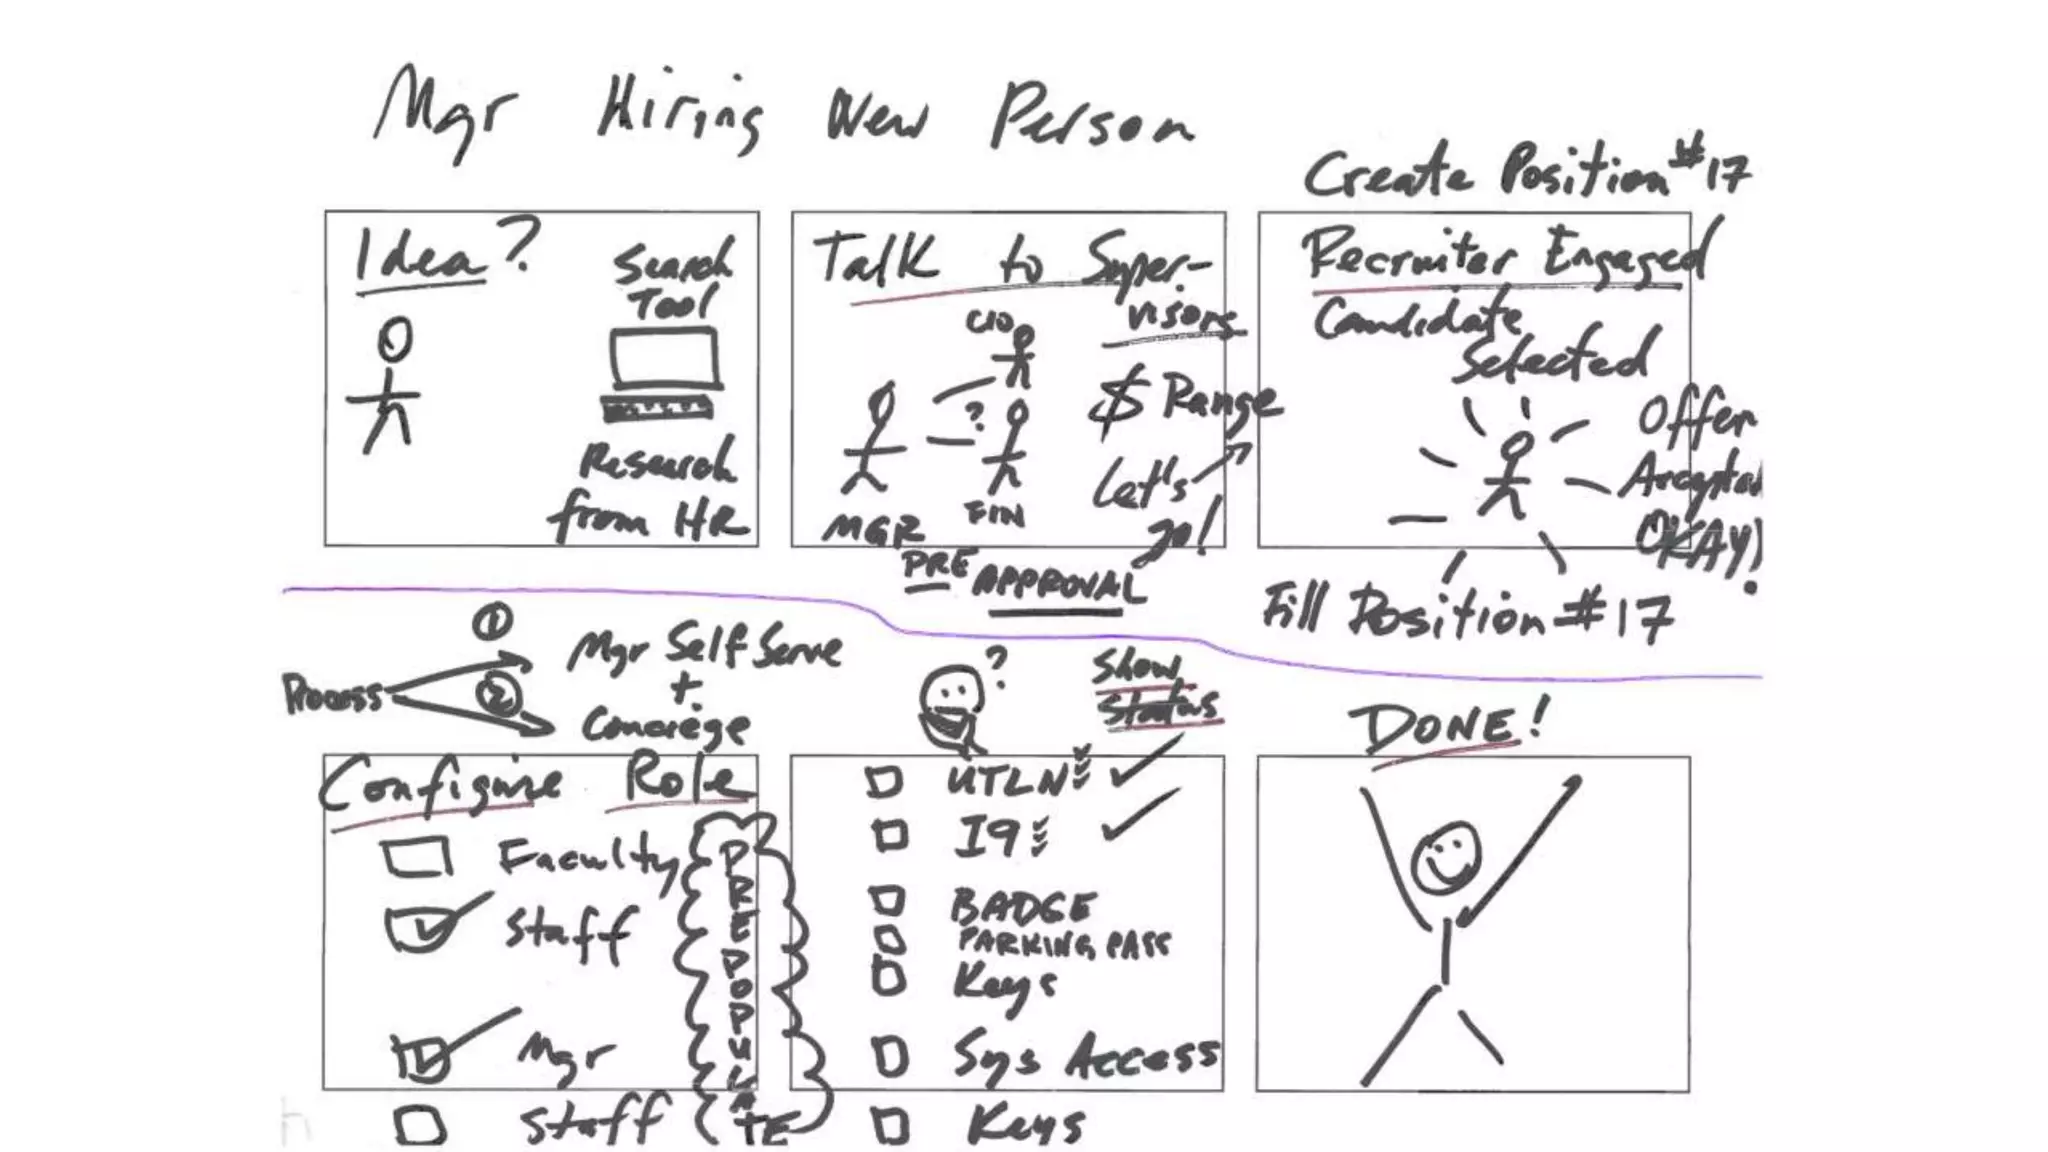 Mgr Hiring New Person
Create Position #17
Idea?
Search
Tool
Research
from HR
Talk to Super-
visors
CIO
$ Range
?
Let's
go!
MGR
FIN
PRE APPROVAL
Recruiter Engaged
Candidate
Selected
Offer
Accepted
OKAY!
Fill Position #17
Process
1
2
Mgr Self Serve
+
Concierge
Configure Role
Faculty
Staff
Mgr
Staff
PREPOPULATE
?
Show
Status
UTLN
I9
BADGE
PARKING PASS
Keys
Sys Access
Keys
DONE!